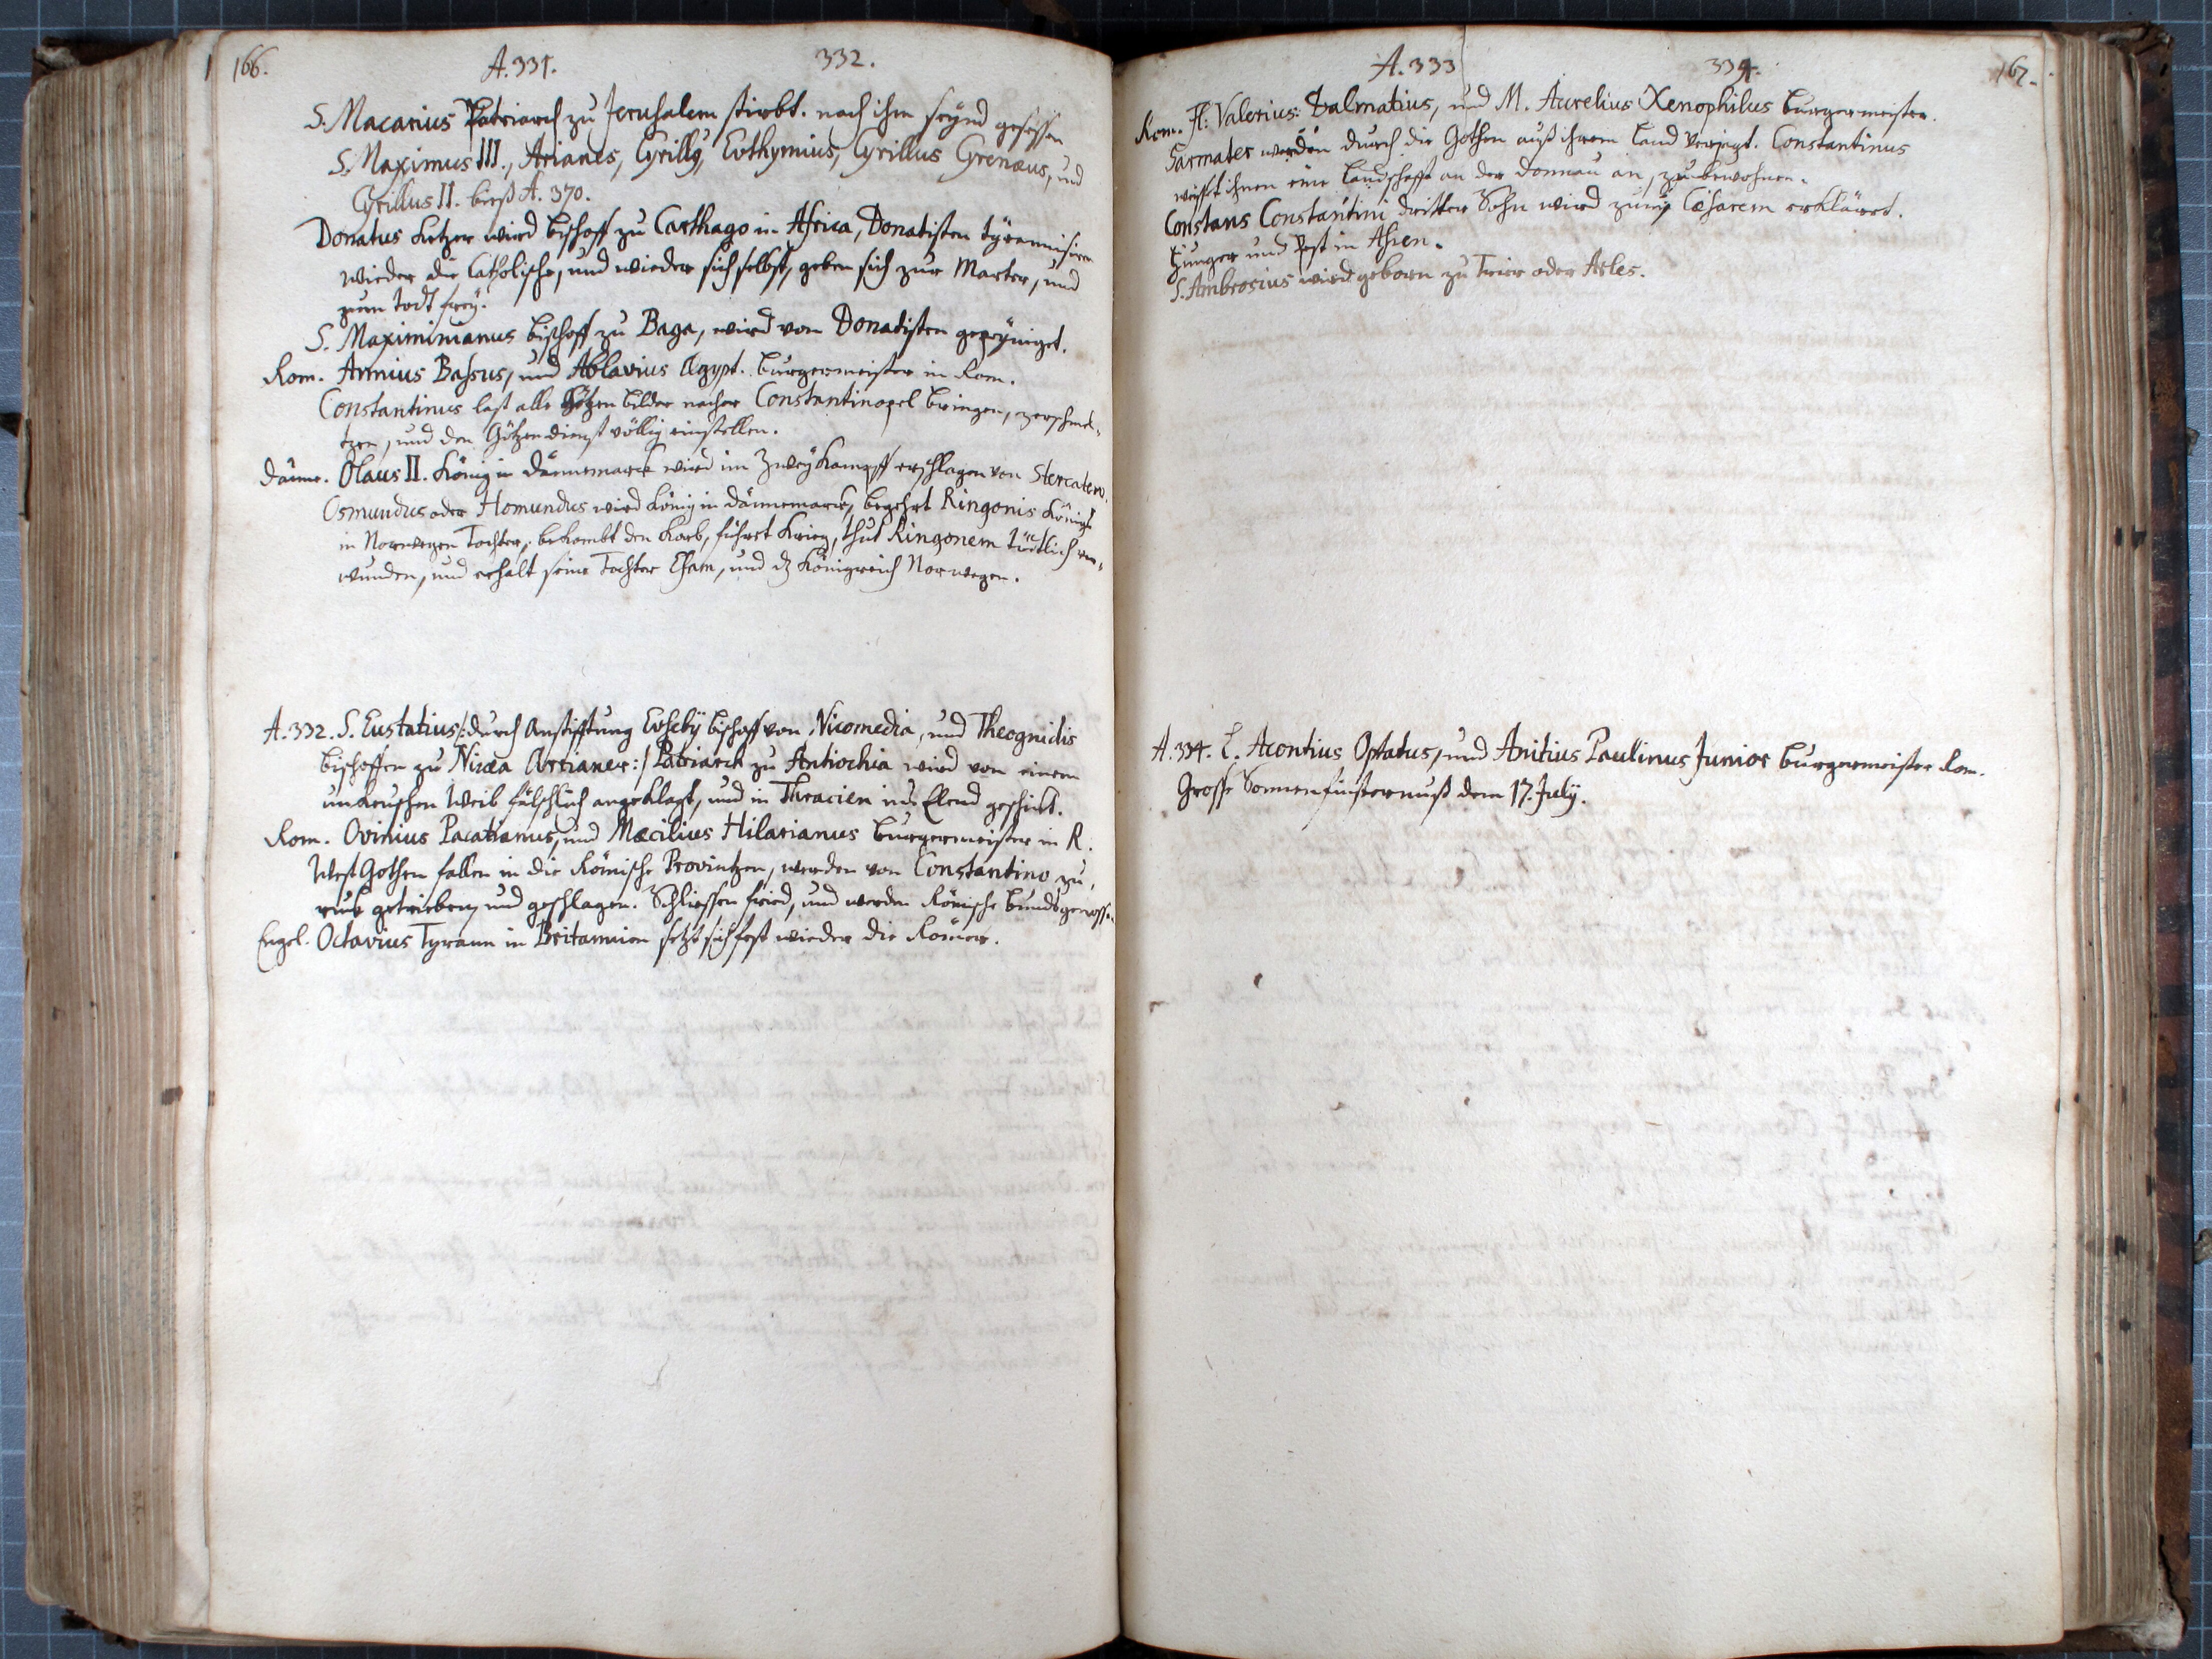 166.
A. 331.
332.
S. Macarius Patriarch zu Jerusalem stirbt. nach ihm seynd gesessen
S. Maximus III., Arianes, Cyrillq, Euthymius, Cyrillus Cyrenæus, und
Cyrillus II. biß A. 370.
Donatus Ketzer wird bischoff zu Carthago in Africa, Donatisten tÿrannisiren
wieder die Catholische, und wieder sich selbst, geben sich zur Marter, und
zum todt freÿ.
S. Maximinianus bischoff zu Baga, wird von Donatisten gepeÿniget.
Rom. Annius Bassus, und Ablavius Ægypt. burgermeister in Rom.
Constantinus last alle Götzen bilder nacher Constantinopel bringen, zerschmel-
tzen, und den Götzendienst völlig einstellen.
Dänne. Olaus II. König in Dännemarck wird im Zweÿkampff erschlagen von Stercatero.
Osmundus oder Homundus wird König in Dännemarck, begehrt Ringonis Königs
in Norwegen Tochter, bekombt den Korb, führet Krieg, thut Ringonem tödtlich ver-
wunden, und erhalt seine Tochter Esam, und dz Königreich Norwegen.
A. 332. S. Eustatius /:durch anstifftung Eusebÿ bischoff von Nicomedia, und Theognidis
bischoffen zu Nicæa Arrianer:/ Patriarch zu Antiochia wird von einem
unkeuschen Weib fälschlich angeklagt, und in Thracien ins Elend geschickt.
Rom. Ovinius Pacatianus, und Mæcilius Hilarianus burgermeister in R.
West Gothen fallen in die Römische Provintzen, werden von Constantino zu-
ruck getrieben, und geschlagen. Schliessen frid, und werden Römische bundsgenossen.
Engel. Octavius Tyrann in Britannien setzt sich fest wieder die Römer.
A. 333
334.
167.
Rom. Fl: Valerius: Dalmatius, und M. Aurelius Xenophilus burgermeister.
Sarmater werden durch die Gothen auß ihrem Land verjagt. Constantinus
weisst ihnen eine Landschafft an der Donnau an, zu bewohnen.
Constans Constantini dritter Sohn wird zum Cæsarem erkläret.
Hunger und Pest in Asien.
S. Ambrosius wird geboren zu Trier oder Arles.
A. 334. L. Acontius Optatus, und Anitius Paulinus Junior burgermeister Rom.
Grosse Sonnenfinsternuß dem 17. Julÿ.